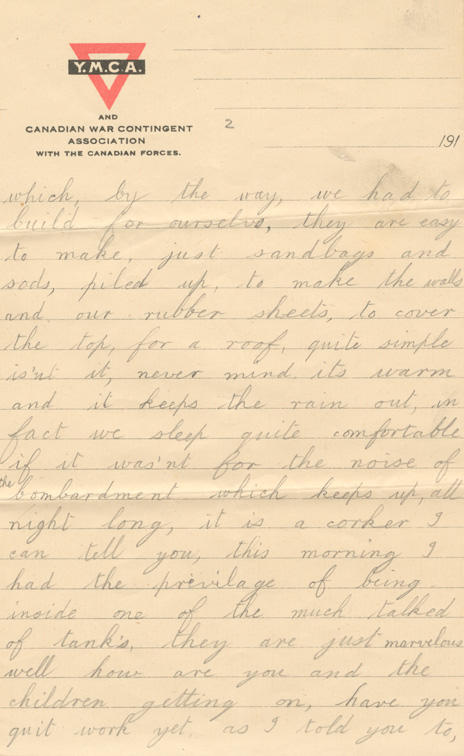 Y.M.C.A.
AND
CANADIAN WAR CONTINGENT
ASSOCIATION
WITH THE CANADIAN FORCES.
2
191
which, by the way, we had to
build for ourselves, they are easy
to make, just sandbags and
sods, piled up, to make the walls
and our rubber sheets, to cover
the top, for a roof, quite simple
is'nt it, never mind its warm
and it keeps the rain out, in
fact we sleep quite comfortable
if it was'nt for the noise of
the bombardment which keeps up, all
night long, it is a corker I
can tell you, this morning I
had the privilage of being
inside one of the much talked
of tank's, they are just marvelous
well how are you and the
children getting on, have you
quit work yet. as I told you to,